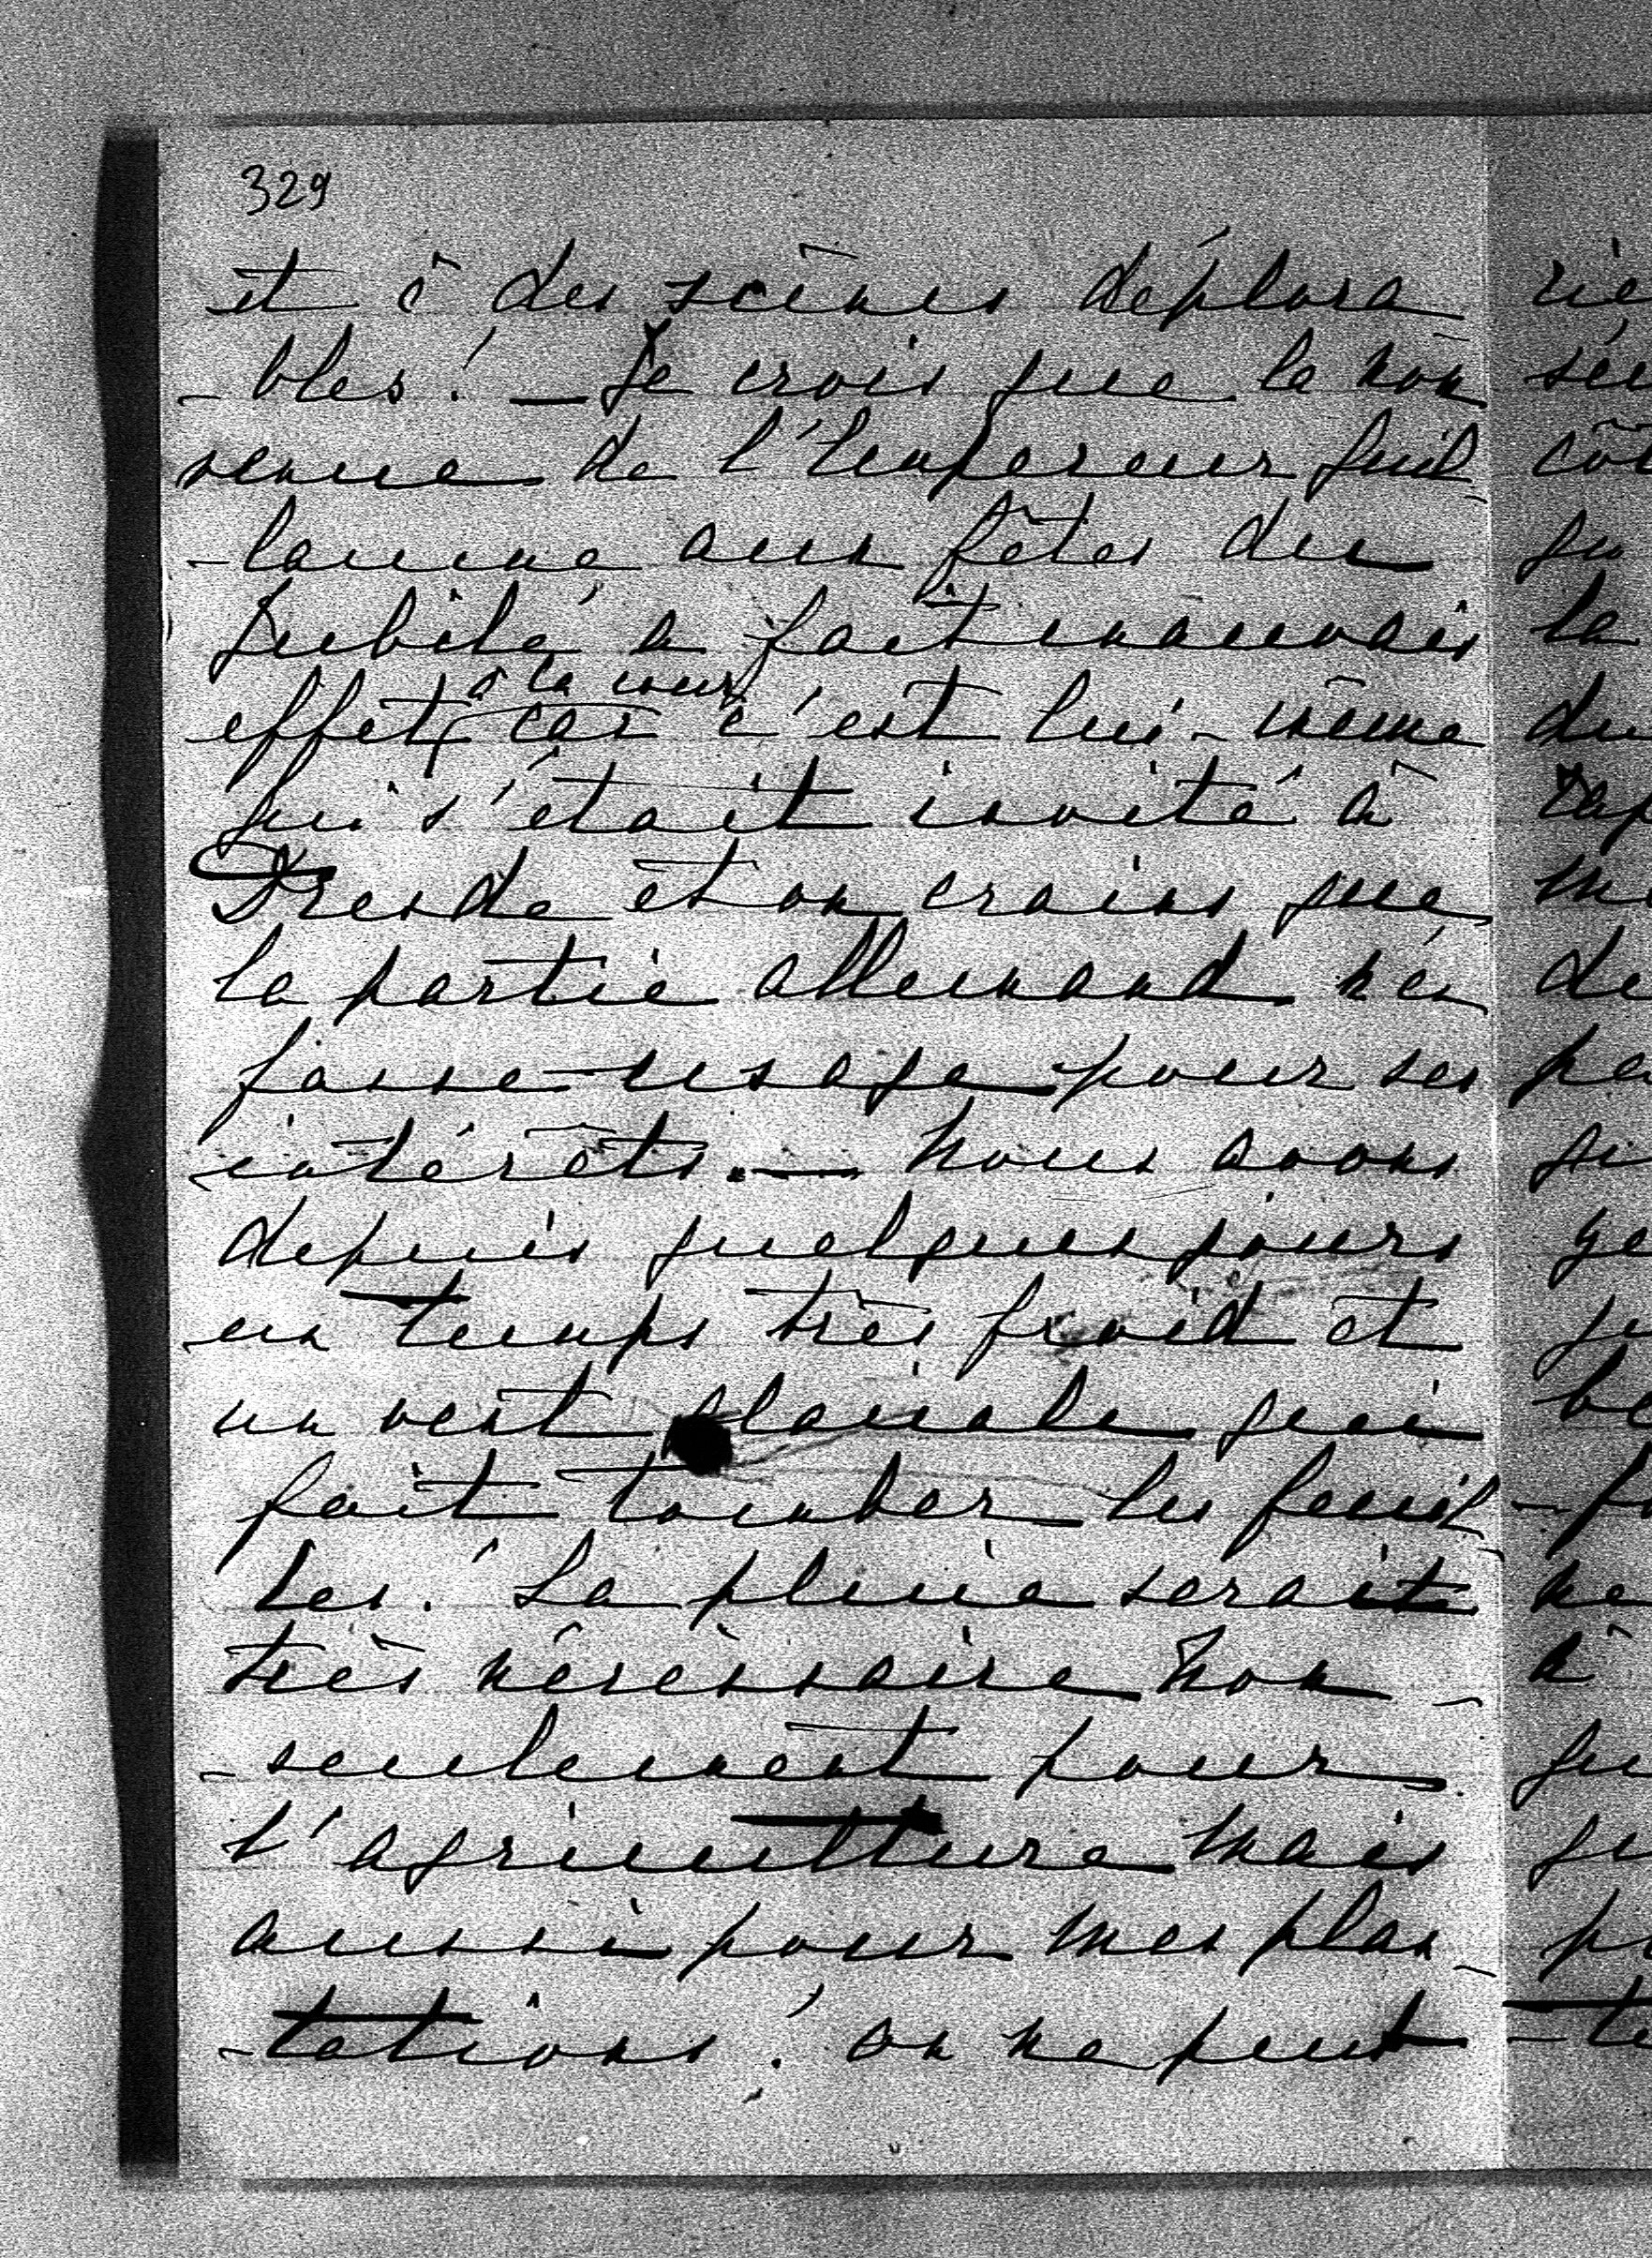 329
et à des scènes déplora
- bles! — Je crois que la non
venue de l'Empereur Guil
- laume aux fêtes du
Jubilé a fait mauvais
à la cour
effet car c'est lui-même
qui s'était invité à
Dresde et on crains que
la partie allemand n'en
fasse usage pour ses
intérêts. — Nous avons
depuis quelques jours
un temps très froid et
un vent glaciale qui
fait tomber les feuil
les! La pluie serait
très nécessaire non -
- seulement pour
l'agriculture mais
aussi pour mes plan
- tations! on ne peut